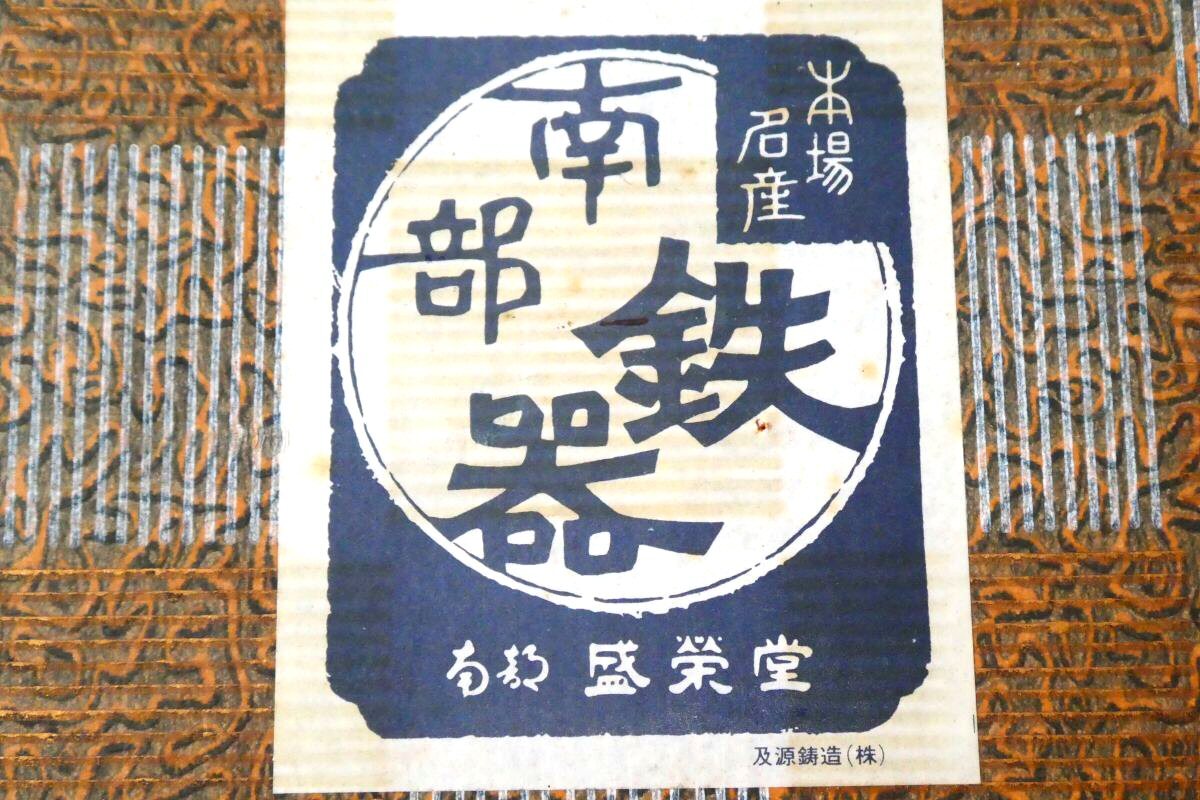 本場
名産
南部
鉄器
南部 盛榮堂
及源鋳造(株)